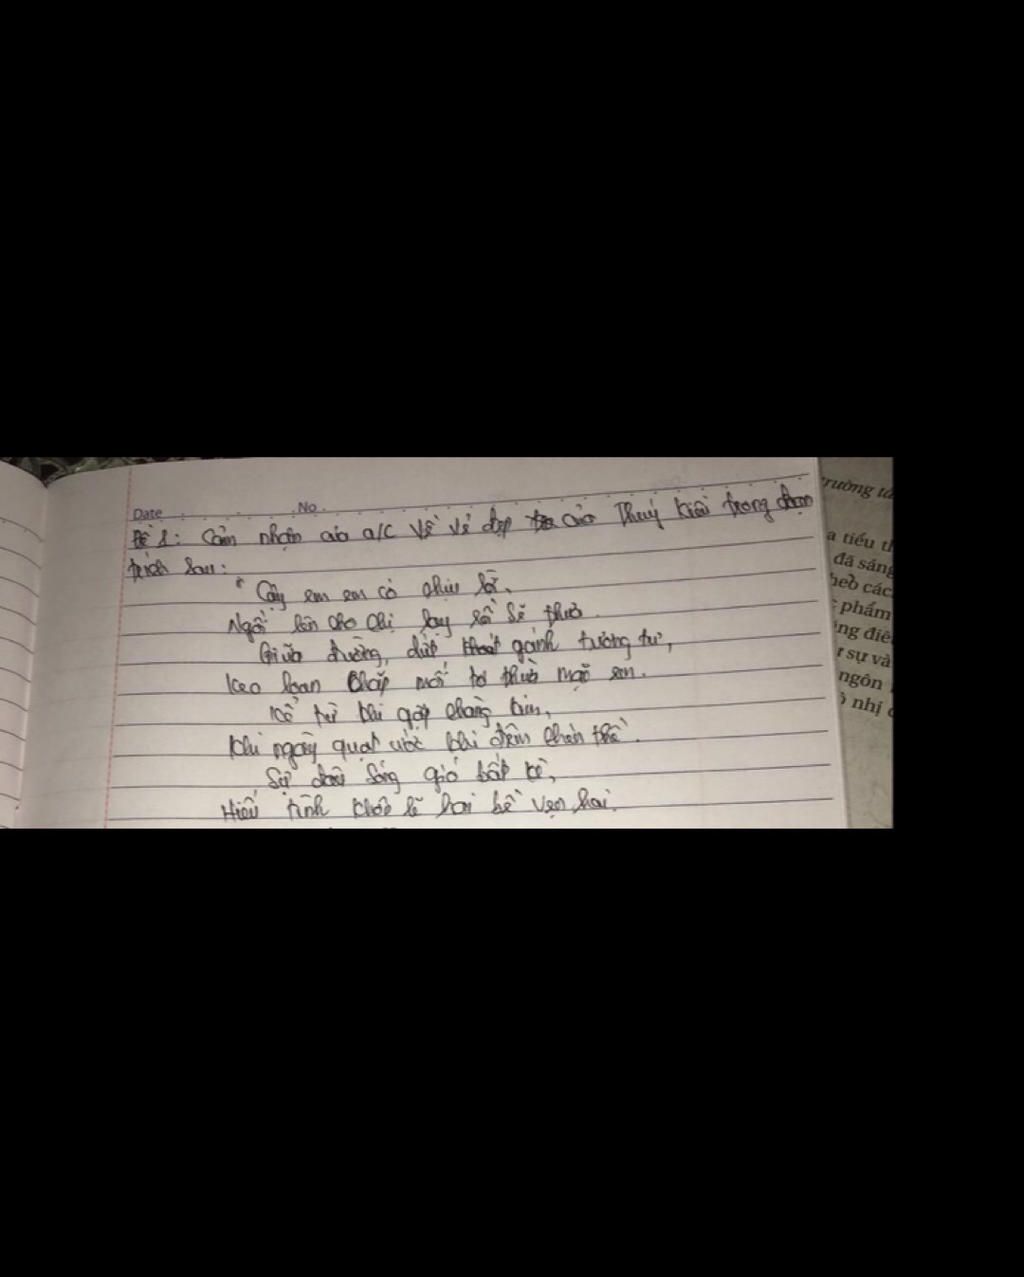 Date No.
Đề 1: Cảm nhận của a/c về vẻ đẹp của Thuý Kiều trong đoạn
trích sau:
" Cậy em em có chịu lời,
Ngồi lên cho chị lạy rồi sẽ thưa.
Giữa đường, đứt gánh tương tư,
Keo loan chắp mối tơ thừa mặc em.
Kể từ khi gặp chàng Kim,
Khi ngày quạt ước khi đêm chén thề.
Sự đâu sóng gió bất kì,
Hiếu tình khôn lẽ hai bề vẹn hai.
trường
a tiểu
đã sáng
heo các
phẩm
sự và
ngôn
nhị